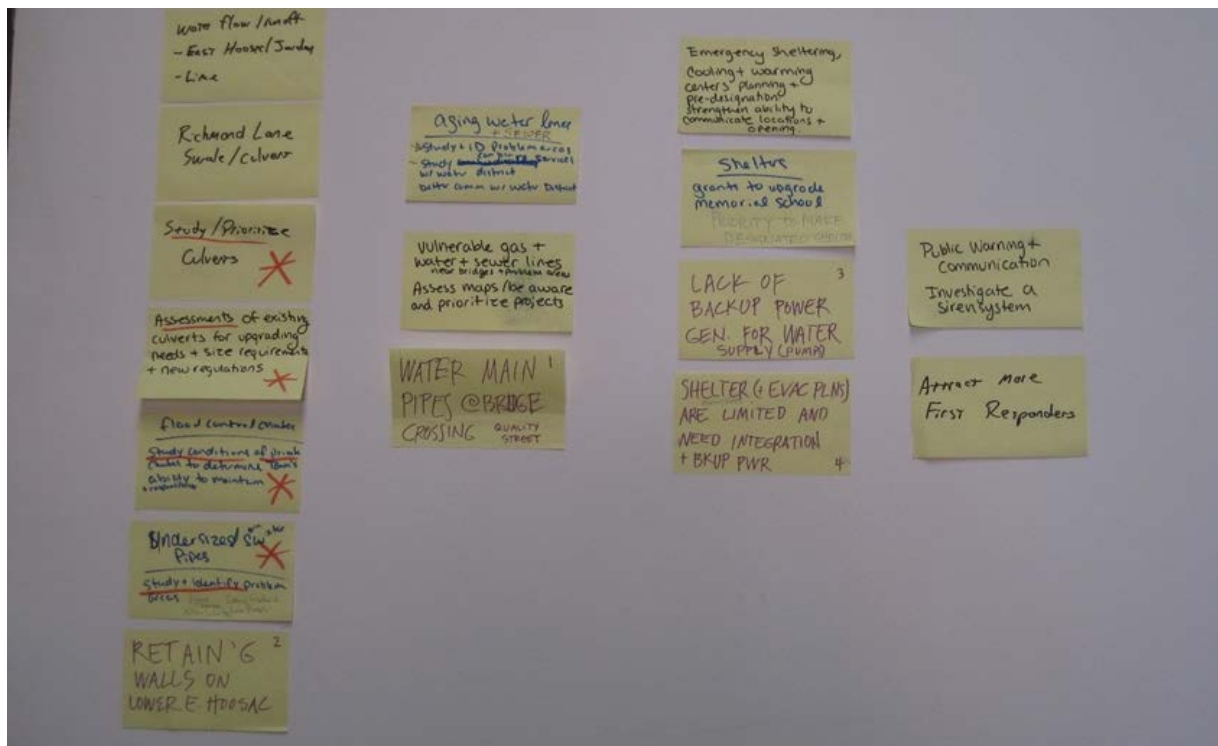 flow / runoff
- East Hoosac /
- Lime
Richmond Lane
Swale/culvert
Study/Prioritize
Culverts
Assessments of existing
culverts for upgrading
needs + size requirements
+ new regulations
flood control
Study conditions of
to determine town's
ability to maintain
Undersized SW
Pipes
Study + identify problem
areas
RETAIN'G 2
WALLS ON
LOWER E. HOOSAC
aging water lines
+ SEWER
Study + ID Problem areas
- Study services
w/ water district
better comm w/ water District
vulnerable gas +
water + sewer lines
near bridges + problem areas
Assess maps/be aware
and prioritize projects
WATER MAIN 1
PIPES @ BRIDGE
CROSSING QUALITY
STREET
Emergency Sheltering,
Cooling + warming
centers planning +
pre-designation
strengthen ability to
communicate locations +
opening.
Shelter
grants to upgrade
memorial school
PRIORITY to MAKE
DESIGNATED SHELTER
LACK OF 3
BACKUP POWER
GEN. FOR WATER
SUPPLY (PUMPS)
SHELTER (+ EVAC PLNS)
ARE LIMITED AND
NEED INTEGRATION
+ BKUP PWR 4
Public Warning +
Communication
Investigate a
siren system
Attract More
First Responders